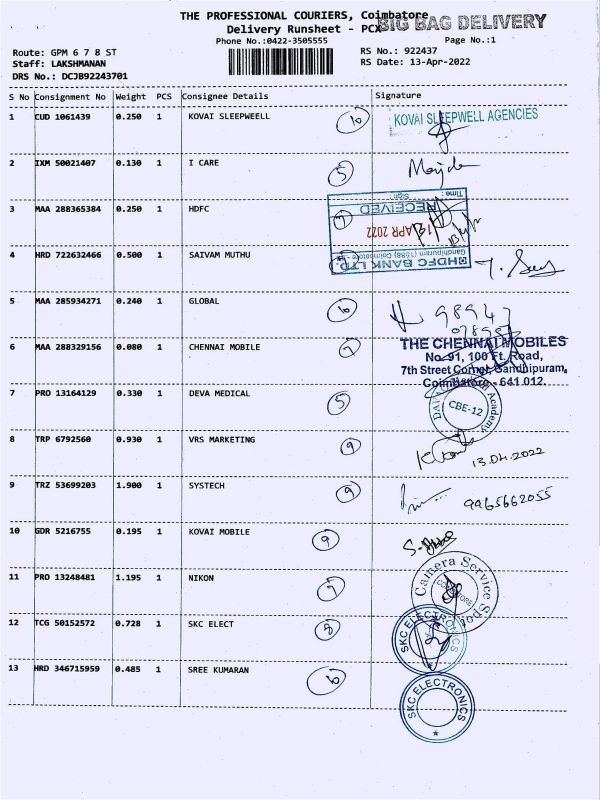 THE PROFESSIONAL COURIERS, Coimbatore
BIG BAG DELIVERY
Delivery Runsheet - PCX
Phone No.:0422-3505555
Page No.:1
Route: GPM 6 7 8 ST
RS No.: 922437
Staff: LAKSHMANAN
RS Date: 13-Apr-2022
DRS No.: DCJB92243701
S No Consignment No Weight PCS Consignee Details Signature
1 CUD 1061439 0.250 1 KOVAI SLEEPWEELL 10 KOVAI SLEEPWELL AGENCIES
2 IXM 50021407 0.130 1 I CARE 5
Time :
Sign :
RECEIVED
3 MAA 288365384 0.250 1 HDFC 7
APR 2022
Gandhipuram (1588) Coimbatore
HDFC BANK LTD.
4 HRD 722632466 0.500 1 SAIVAM MUTHU
5 MAA 285934271 0.240 1 GLOBAL 6
6 MAA 288329156 0.080 1 CHENNAI MOBILE 7
THE CHENNAI MOBILES
No-91, 100 Ft. Road,
7th Street Corner, Gandhipuram,
Coimbatore - 641 012.
7 PRO 13164129 0.330 1 DEVA MEDICAL 5
CBE-12
Academy
8 TRP 6792560 0.930 1 VRS MARKETING 9 13.04.2022
9 TRZ 53699203 1.900 1 SYSTECH 9 9965662055
10 GDR 5216755 0.195 1 KOVAI MOBILE 9
11 PRO 13248481 1.195 1 NIKON 7
Camera Service
12 TCG 50152572 0.728 1 SKC ELECT 8
SKC ELECTRONICS
13 HRD 346715959 0.485 1 SREE KUMARAN
SKC ELECTRONICS